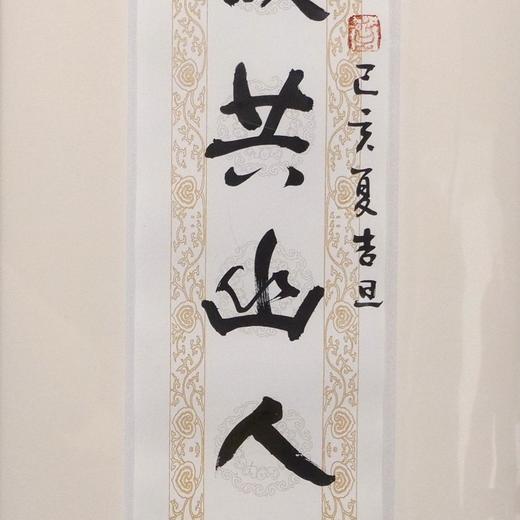 己亥夏吉旦
共幽人